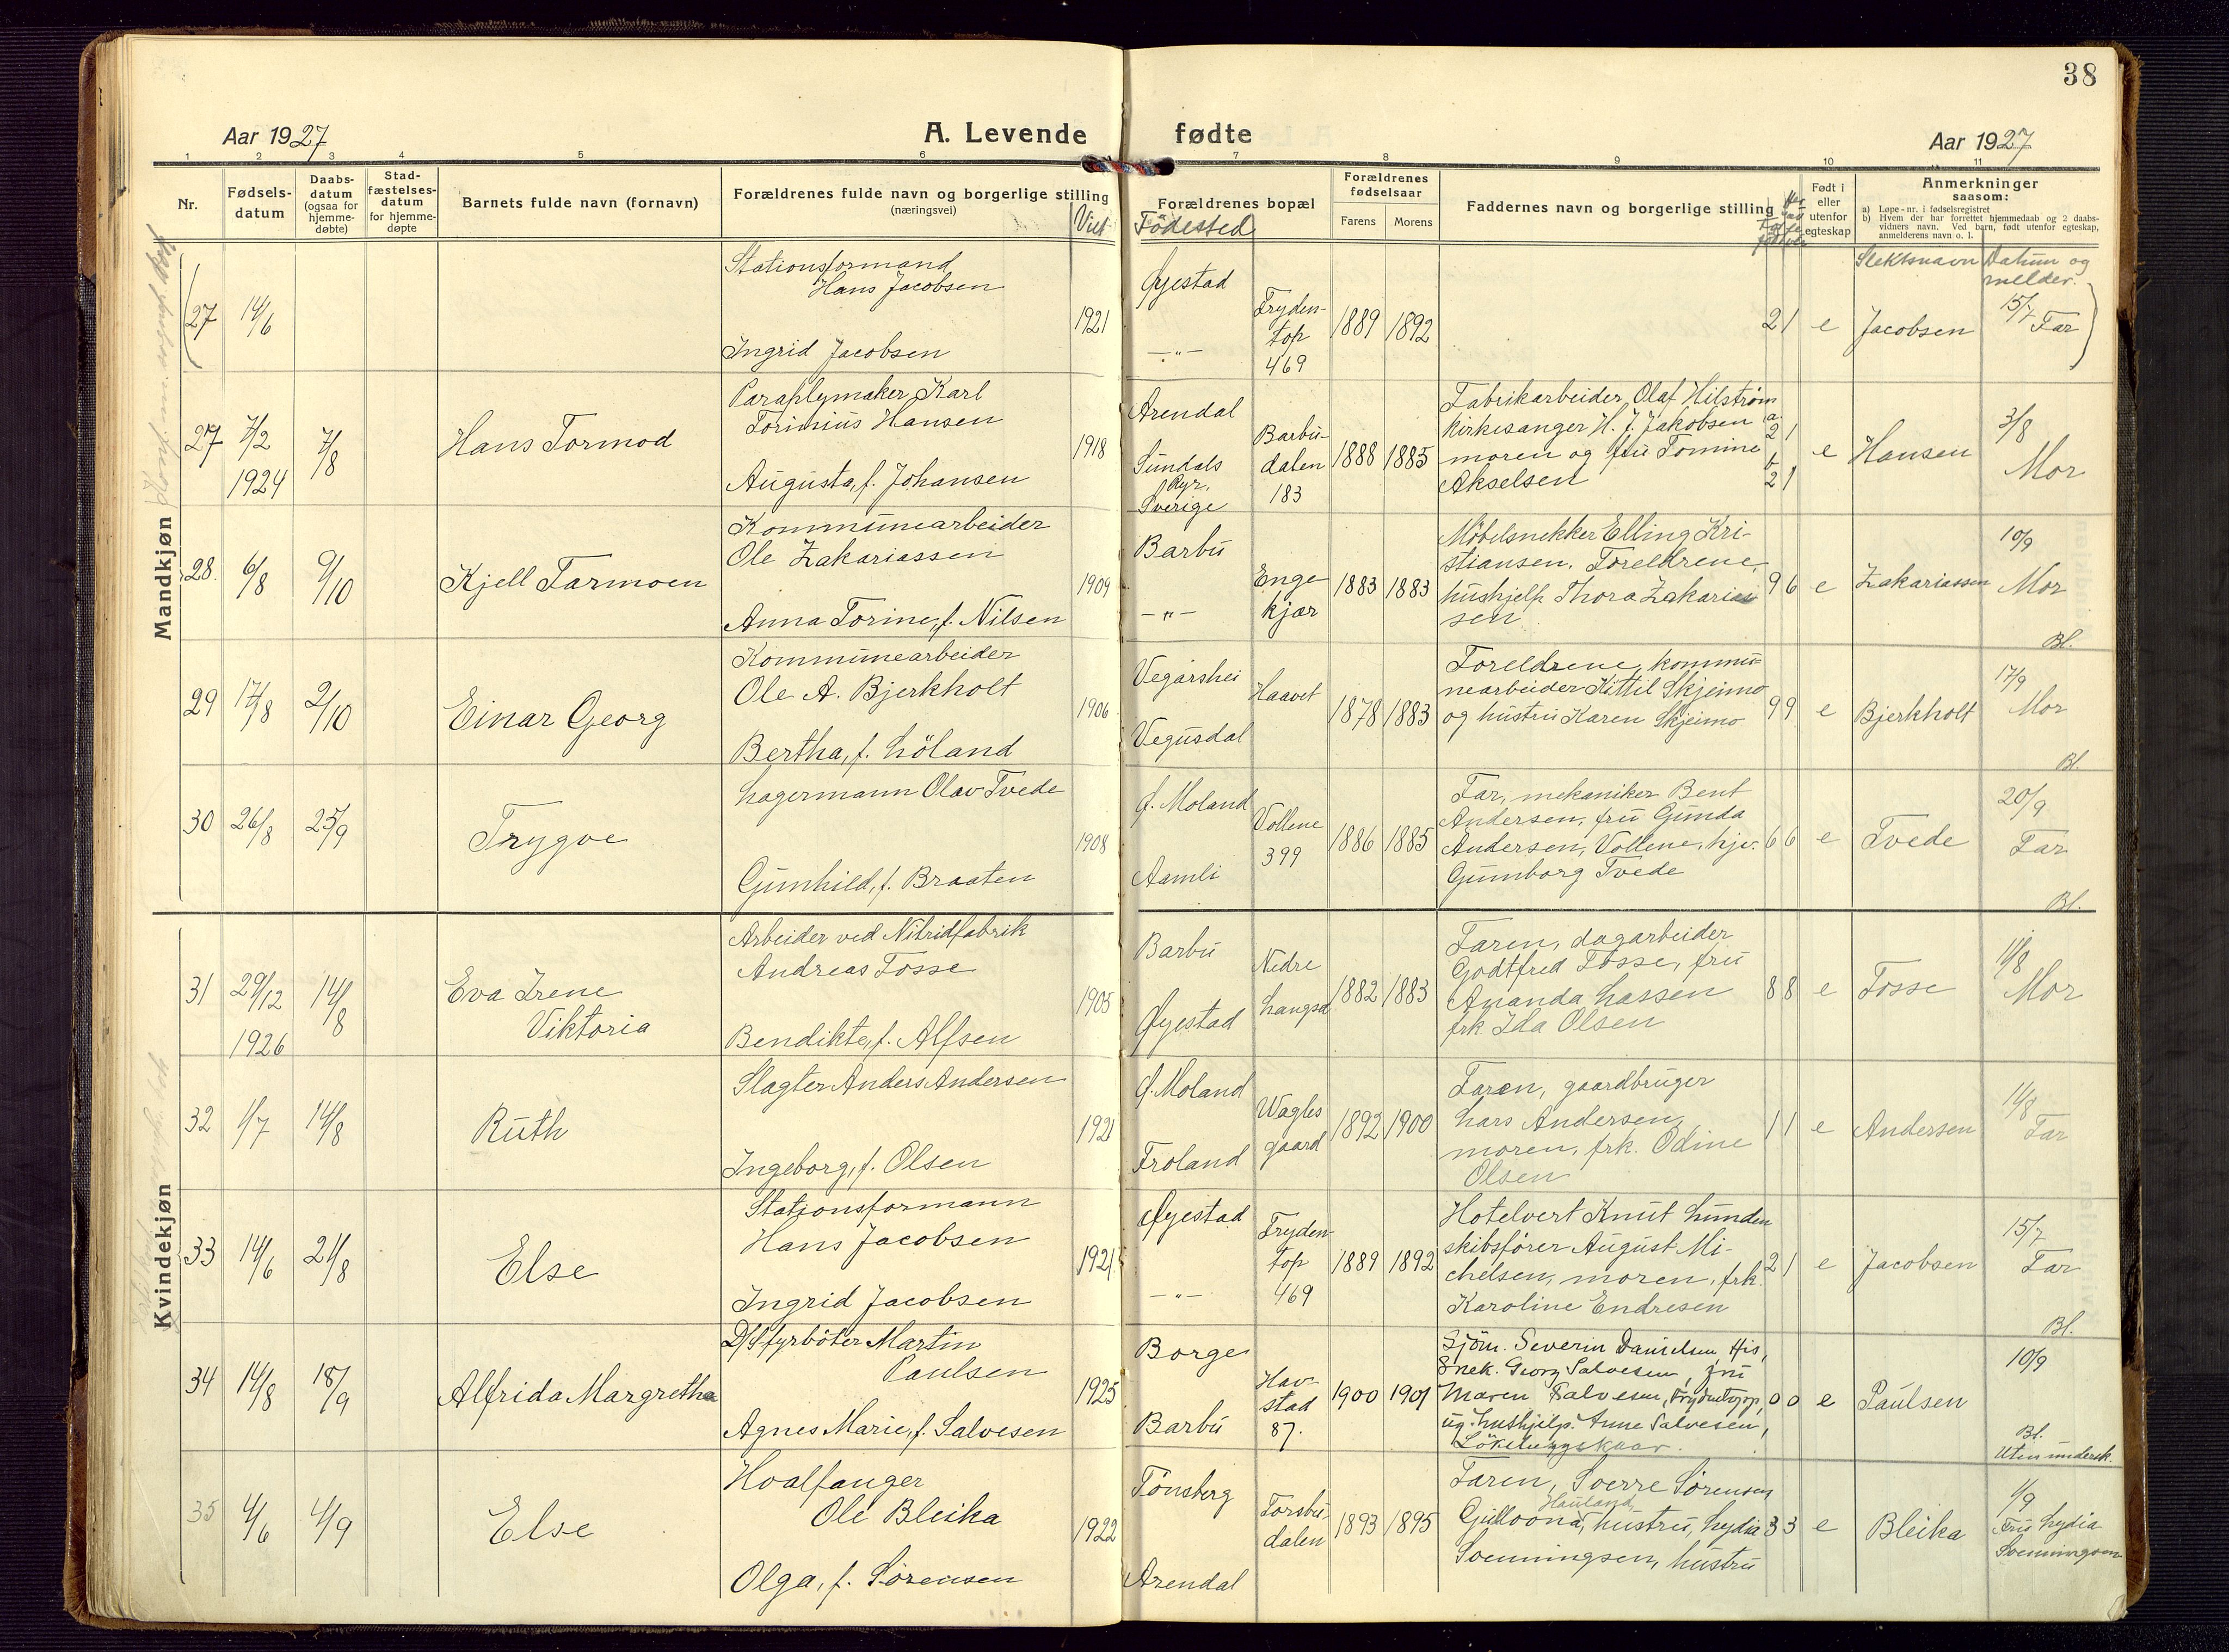 38
Aar 1927
A. Levende fødte
Aar 1927
1 2 3 4 5 6 7 8 9 10 11
Nr.
Fødsels-
datum
Daabs-
datum
(ogsaa for
hjemme-
døbte)
Stad-
fæstelses-
datum
for hjemme-
døpte
Barnets fulde navn (fornavn)
Forældrenes fulde navn og borgerlige stilling
(næringsvei)
Viet
Forældrenes bopæl
Födested
Forældrenes
fødselsaar
Farens
Morens
Faddernes navn og borgerlige stilling
Født i
eller
utenfor
egteskap
Anmerkninger
saasom:
a) Løpe-nr. i fødselsregistret
b) Hvem der har forrettet hjemmedaab og 2 daabs-
vidners navn. Ved barn, født utenfor egteskap,
anmelderens navn o. l.
Slektsnavn
Datum og
melder.
Mandkjøn
27
14/6
Stationsformand
Hans Jacobsen
Ingrid Jacobsen
1921
Øyestad
—"—
Fryden-
top
469
1889
1892
2 1
e
Jacobsen
15/7
Far
27
7/2
1924
7/8
Hans Tormod
Paraplymaker Karl
Torinius Hansen
Augusta, f. Johansen
1918
Arendal
Sundals
Ryr,
Sverige
Barbu-
dalen
183
1888
1885
Fabrikarbeider Olaf Hilstrøm
kirkesanger H. J. Jakobsen
moren og fru Tomine
Akselsen
a.
2 1
b
2 1
e
Hansen
3/8
Mor
28.
6/8
9/10
Kjell Tarmoen
Kommunearbeider
Ole Zakariassen
Anna Torine, f. Nilsen
1909
Barbu
—"—
Enge
kjær
1883
1883
Møbelsnekker Elling Kri-
stiansen. Foreldrene,
hushjelp Thora Zakarias
sen
9 6
e
Zakariassen
10/9
Mor
Bl.
29
17/8
2/10
Einar Georg
Kommunearbeider
Ole A. Bjerkholt
Bertha, f. Löland
1906
Vegårshei
Vegusdal
Haavet
1878
1883
Foreldrene, kommu-
nearbeider Kittil Skjeimo
og hustru Karen Skjeimo
9 9
e
Bjerkholt
17/9
Mor
Bl.
30
26/8
25/9
Trygve
Lagermann Olav Tvede
Gunhild, f. Braaten
1908
Ø. Moland
Aamli
Vollene
399
1886
1885
Far, mekaniker Bent
Andersen, fru Gunda
Andersen, Vollene, hjv.
Gunborg Tvede
6 6
e
Tvede
20/9
Far
Bl.
Kvindekjøn
31
29/12
1926
14/8
Eva Irene
Viktoria
Arbeider ved Nitridfabrik
Andreas Fosse
Bendikte, f. Alfsen
1905
Barbu
Øyestad
Nedre
Langsæ
1882
1883
Faren, dagarbeider
Godtfred Fosse, fru
Ananda Lassen
frk Ida Olsen
8 8
e
Fosse
11/8
Mor
32
1/7
14/8
Ruth
Slagter Anders Andersen
Ingeborg, f. Olsen
1921
Ø. Moland
Froland
Wagles
gaard
1892
1900
Faren, gaardbruger
Lars Andersen,
moren, frk. Odine
Olsen
1 1
e
Andersen
11/8
Far
33
14/6
21/8
Else
Stationsformann
Hans Jacobsen
Ingrid Jacobsen
1921
Øyestad
—"—
Fryden-
top
469
1889
1892
Hotelvert Knut Lunden
skibsfører August Mi-
chelsen, moren, frk.
Karoline Endresen
2 1
e
Jacobsen
15/7
Far
Bl.
34
14/8
18/9
Alfrida Margretha
D/S fyrböter Martin
Paulsen
Agnes Marie, f. Salvesen
1925
Borge
Barbu
Hav-
stad
87.
1900
1901
Sjöm. Severin Danielsen, His,
Snek. Georg Salvesen, fru
Maren Salvesen, Frydentopp,
ug. hushjelp. Anne Salvesen,
0 0
e
Paulsen
10/9
Bl.
Uten undersk.
35
4/6
4/9
Else
Hvalfanger
Ole Bleika
Olga, f. Sørensen
1922
Tønsberg
Arendal
Torsbu-
dalen
1893
1895
Faren, Sverre Sørensen
Hauland,
Gulloona, hustru, Lydia
Svenningsen, hustru
3 3
e
Bleika
1/9
Fru Lydia
Svenningsen